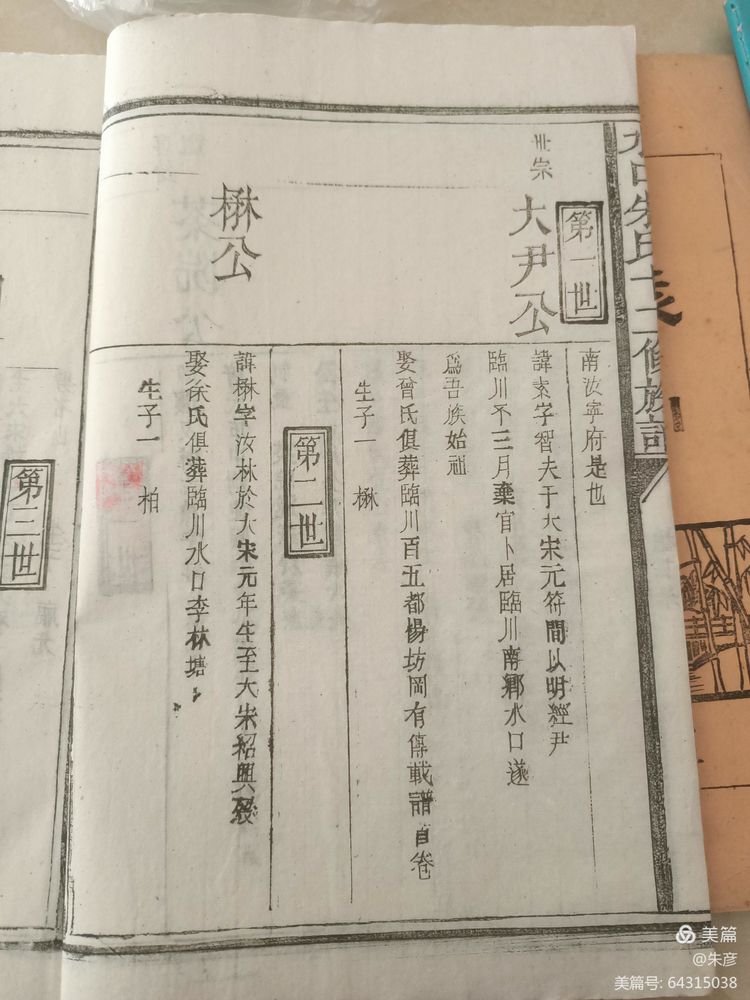 水口朱氏十二修族譜
世宗
第一世
大尹公
南汝寧府是也
諱素字智夫于大宋元符間以明經尹
臨川不三月棄官卜居臨川南鄉水口遂
為吾族始祖
娶曾氏俱葬臨川百五都楊坊岡有傳載譜首卷
生子一 楙
第二世
楙公
諱楙字汝林於大宋元年生至大宋紹興歿
娶徐氏俱葬臨川水口李林塘
生子一 柏
第三世
美篇
@朱彦
美篇号: 64315038